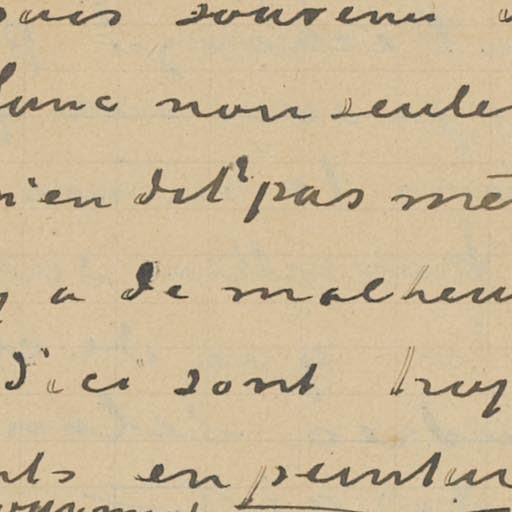 souvenir
non seule
n'en dit pas mê
y a de malheu
d'ici sont trop
nts en peintur